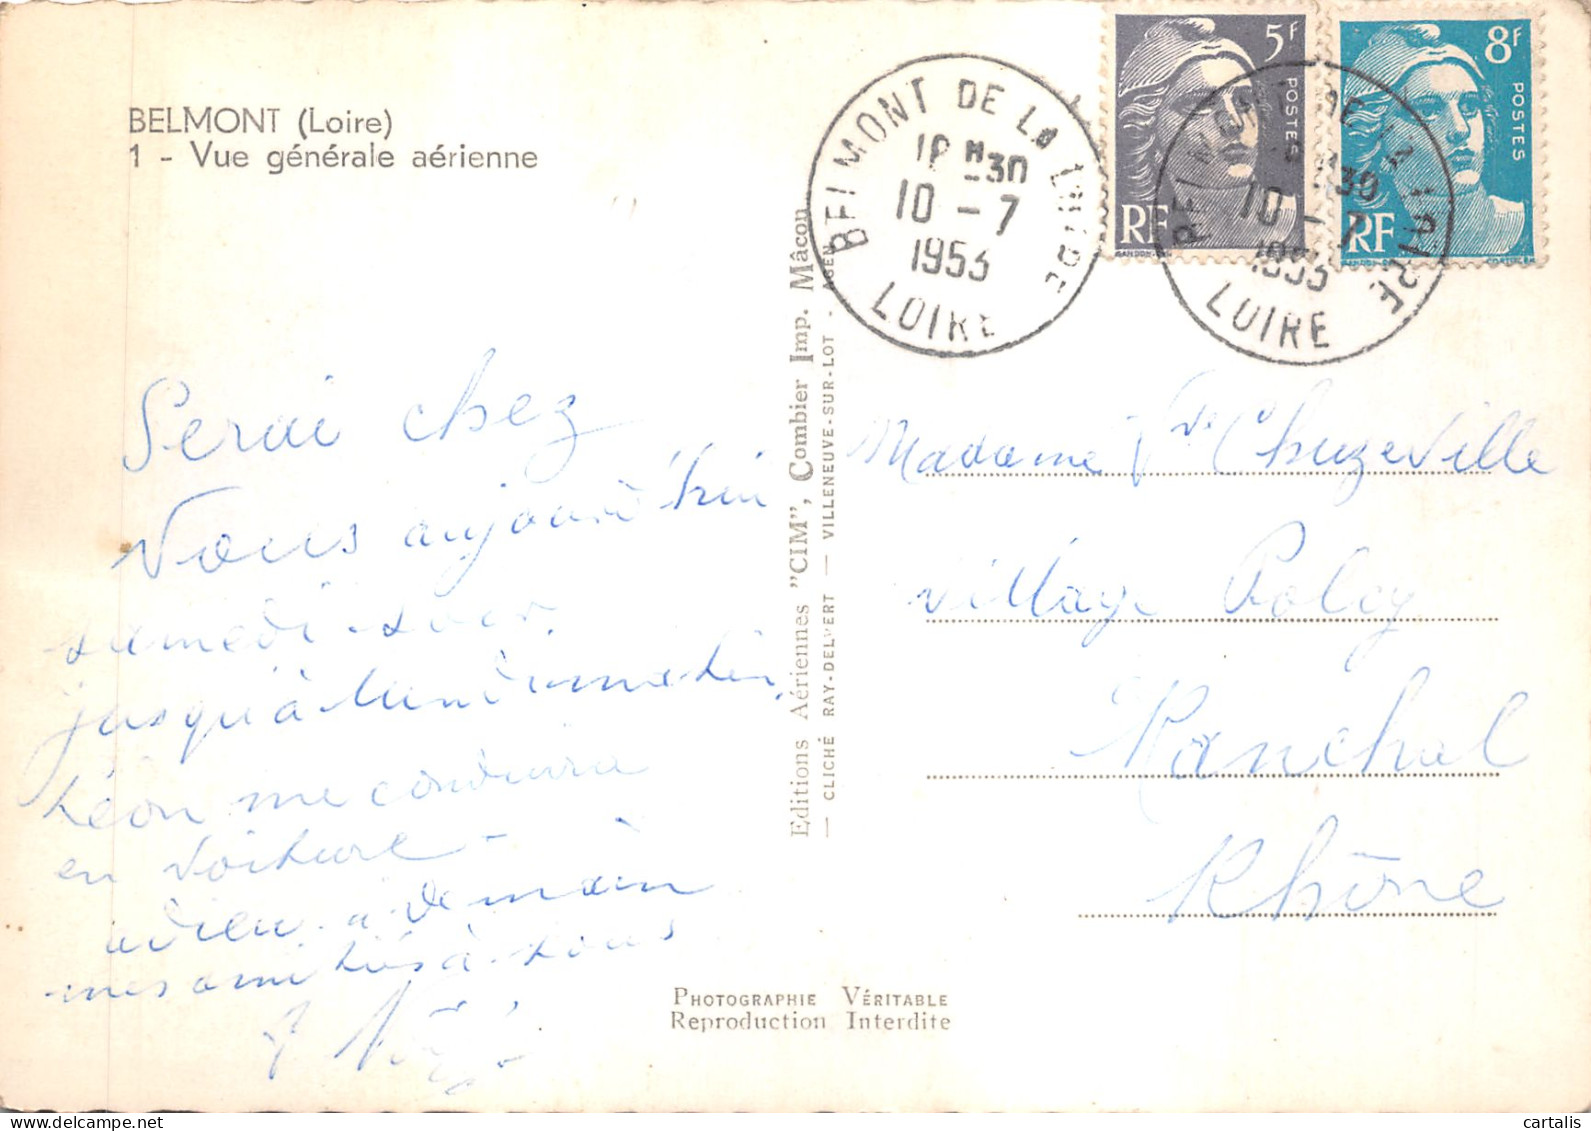 BELMONT (Loire)
1 - Vue générale aérienne
BELMONT DE LA LOIRE
18 H30
10 - 7
1953
LOIRE
5F
POSTES
RF
8F
POSTES
RF
10 - 7
1953
LOIRE
Serai chez
vous aujourd'hui
samedi soir
jusqu'à lundi matin,
Léon me conduira
en voiture -
adieu a demain
mes amitiés à tous
Editions Aériennes "CIM", Combier Imp. Mâcon
— CLICHÉ RAY-DELVERT — VILLENEUVE-SUR-LOT - AGEN
Madame Vve Chuzeville
village Poley
Ranchal
Rhône
PHOTOGRAPHIE VÉRITABLE
Reproduction Interdite
cartalis
delcampe.net